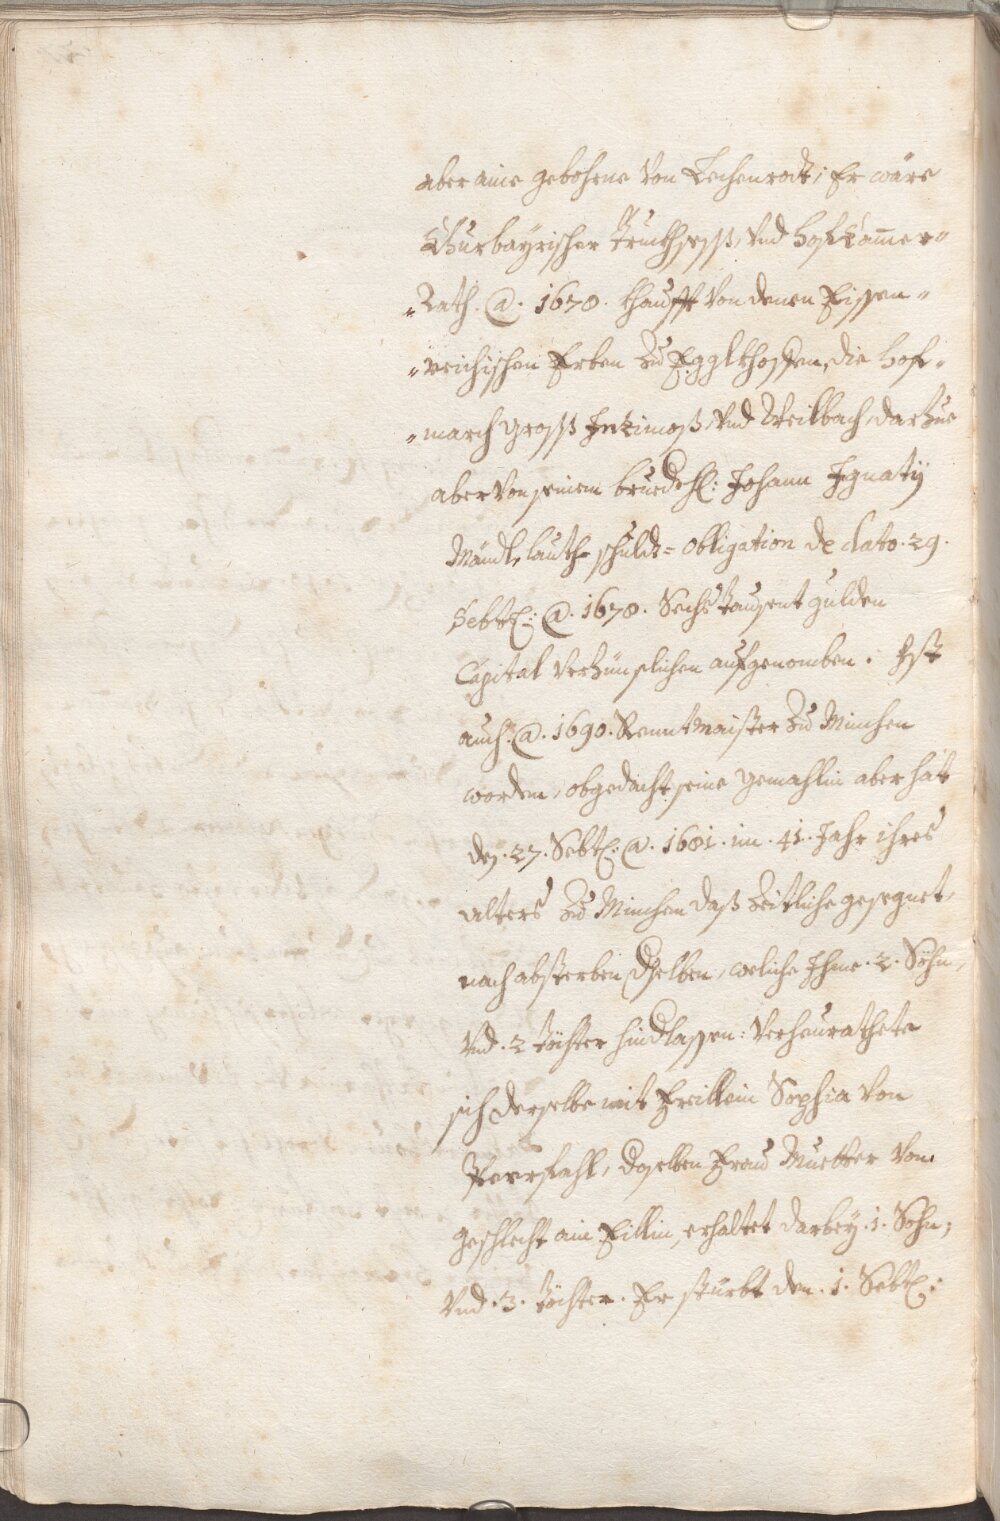 aber aine gebohrne von Lechenrodt; Er ware
Churbayrischer Truchsess, vnd hofkam̄er„
„Rath. @. 1678. khaufft von denen Eissen„
„reichischen Erben zu Egglkhoffen, die hof„
„march gross Inkimoß, vnd Weilbach, darzue
aber von seinem bruedern: Johann Ignatÿ
Mändl, lauth schuldt= obligation de dato. 29.
Sebt: @. 1678. Sechs Tausent gulden
Capital verzünslichen aufgenomben. Ist
auch @. 1690. Renntmaister zu Minchen
worden, obgedacht seine gemahlin aber hat
den. 27. Sebt: @. 1681. im. 41. Jahr ihres
alters zu Minchen daß zeitliche gesegnet,
nach absterben dselben, weliche Ihme. 2. Söhn,
vnd. 2 töchter hindlassen: verheurathete
sich derselbe mit Freillein Sophia von
Pverfahl, dselben Frau Muetter vom
geschlecht ain Fillin, erhaltet darbeÿ. 1. Sohn;
vnd. 3. töchter. Er sturbt den. 1. Sebt: